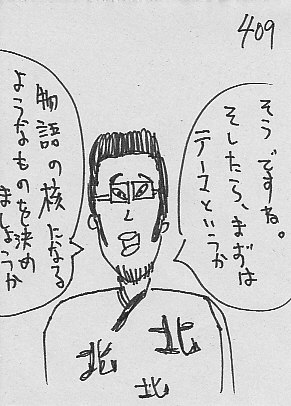 409
そうですね。
そしたら、まずは
テーマというか
物語の核になる
ようなものを決め
ましょうか
北
北
北